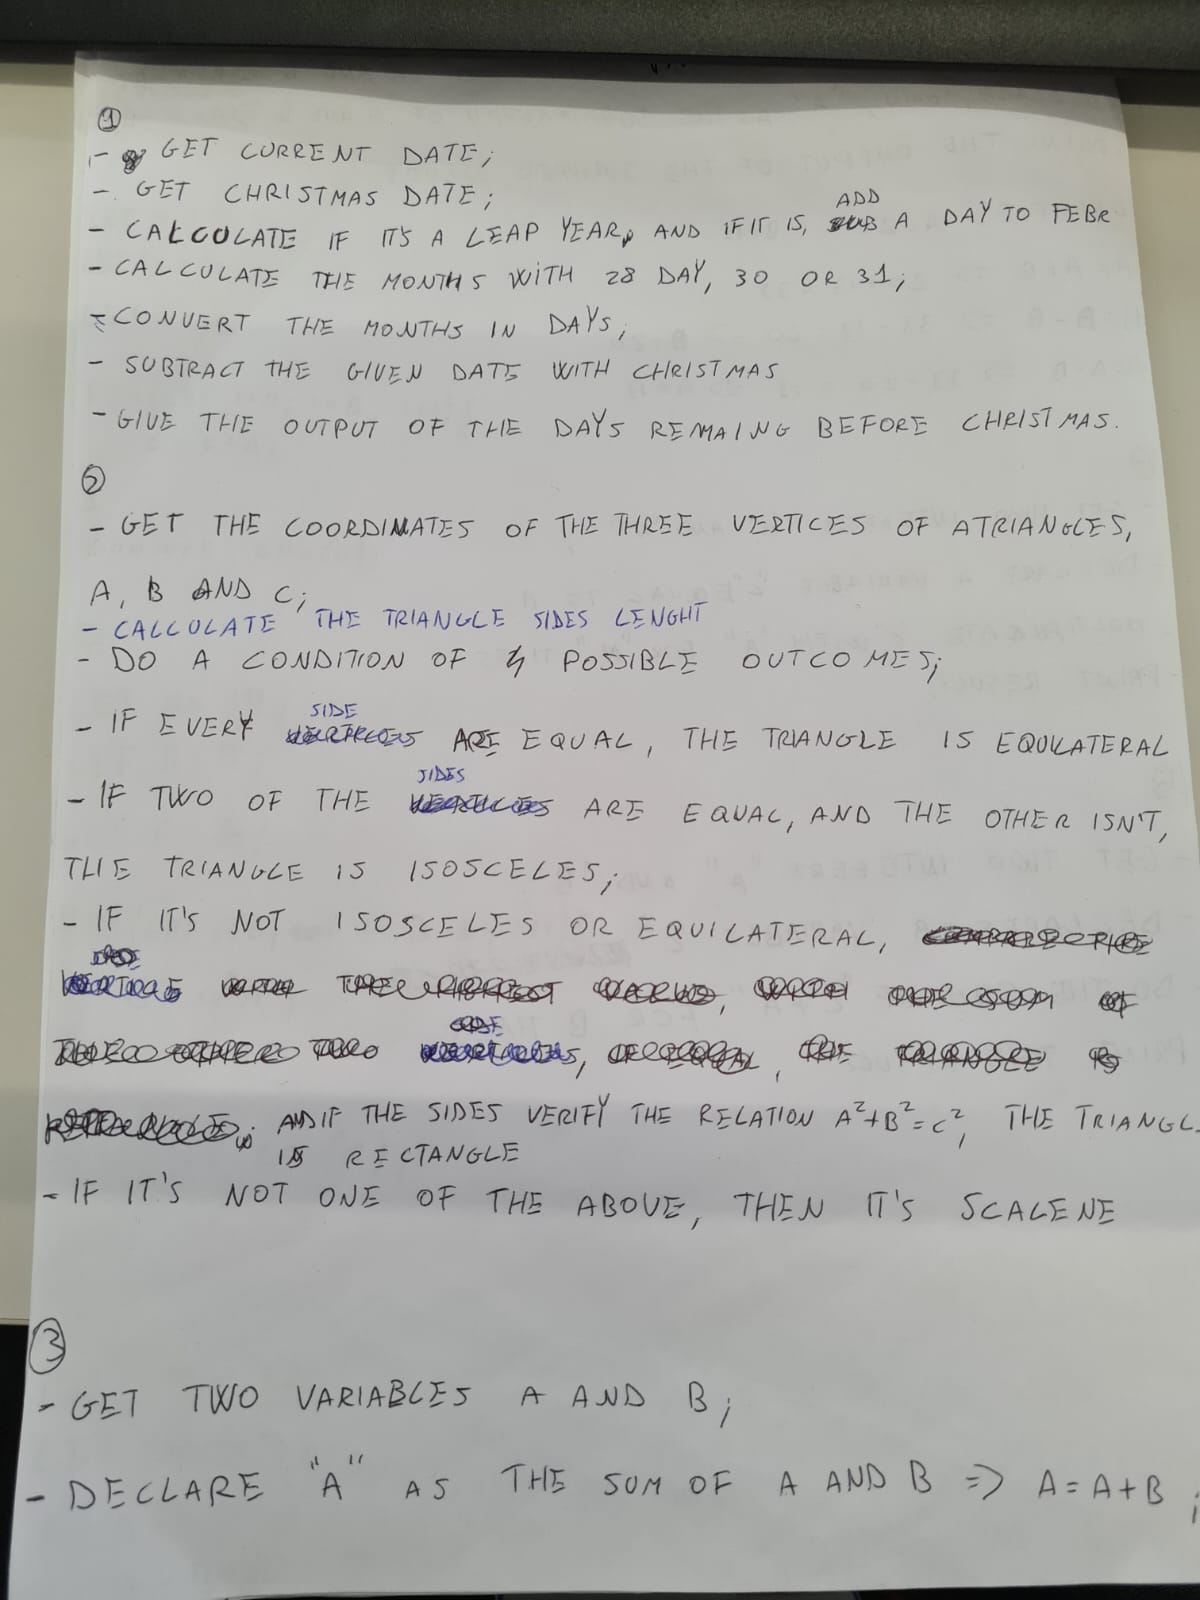 1
- GET CURRENT DATE;
- GET CHRISTMAS DATE;
ADD
- CALCULATE IF IT'S A LEAP YEAR, AND IF IT IS, A DAY TO FEBR
- CALCULATE THE MONTHS WITH 28 DAY, 30 OR 31;
- CONVERT THE MONTHS IN DAYS;
- SUBTRACT THE GIVEN DATE WITH CHRISTMAS
- GIVE THE OUTPUT OF THE DAYS REMAING BEFORE CHRISTMAS.
2
- GET THE COORDINATES OF THE THREE VERTICES OF A TRIANGLES,
A, B AND C;
- CALCULATE THE TRIANGLE SIDES LENGHT
- DO A CONDITION OF 4 POSSIBLE OUTCOMES;
SIDE
- IF EVERY ARE EQUAL, THE TRIANGLE IS EQUILATERAL
SIDES
- IF TWO OF THE ARE EQUAL, AND THE OTHER ISN'T,
THE TRIANGLE IS ISOSCELES;
- IF IT'S NOT ISOSCELES OR EQUILATERAL,
AND IF THE SIDES VERIFY THE RELATION A²+B²=C², THE TRIANGL
IS RECTANGLE
- IF IT'S NOT ONE OF THE ABOVE, THEN IT'S SCALENE
3
- GET TWO VARIABLES A AND B;
- DECLARE "A" AS THE SUM OF A AND B => A = A + B ;